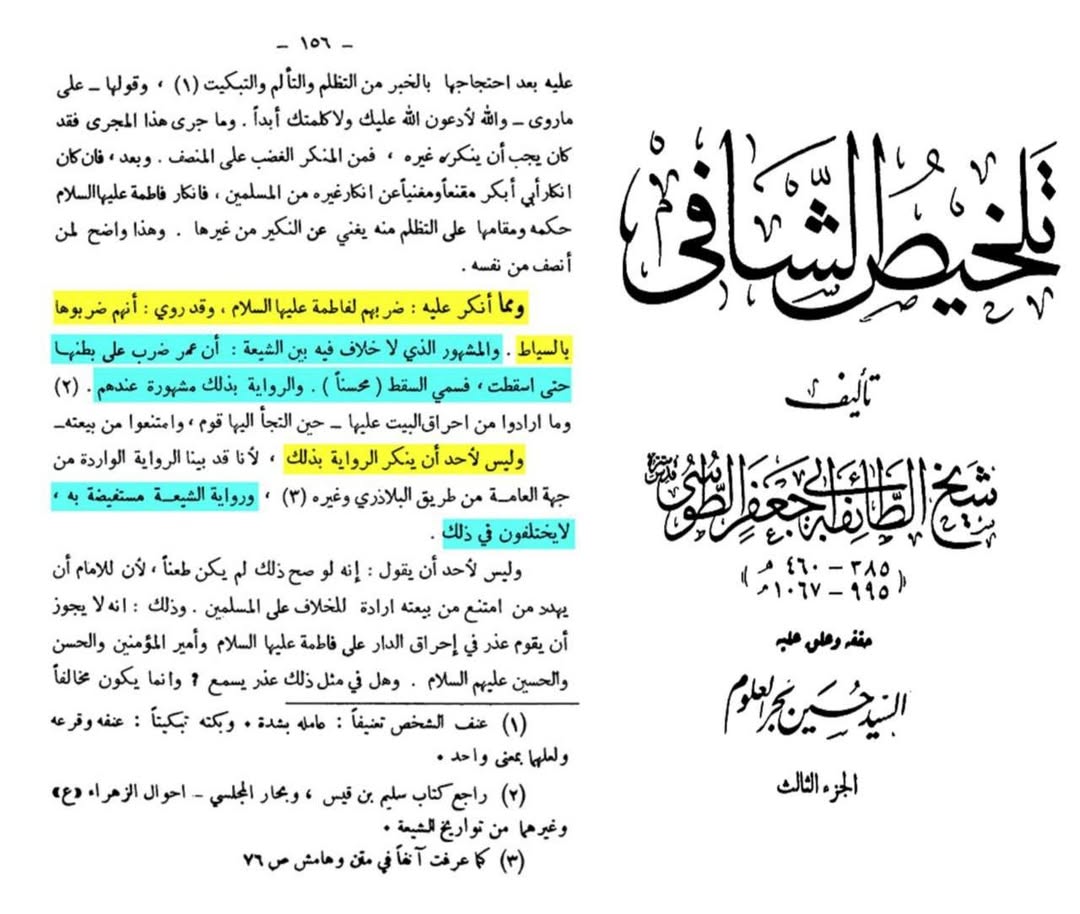 تلخيص الشافي
تأليف
شيخ الطائفة أبي جعفر الطوسي قدس سره
(( ٣٨٥ – ٤٦٠ هـ
٩٩٥ – ١٠٦٧ م ))
حققه وعلق عليه
السيد حسين بحر العلوم
الجزء الثالث
– ١٥٦ –
عليه بعد احتجاجها بالخبر من التظلم والتألم والتبكيت (١) ، وقولها – على
ماروى – والله لأدعون الله عليك ولاكلمتك أبداً . وما جرى هذا المجرى فقد
كان يجب أن ينكره غيره ، فمن المنكر الغضب على المنصف . وبعد ، فان كان
انكار أبي أبكر مقنعاً ومغنياً عن انكار غيره من المسلمين ، فانكار فاطمة عليها السلام
حكمه ومقامها على التظلم منه يغني عن النكير من غيرها . وهذا واضح لمن
أنصف من نفسه .
ومما أنكر عليه : ضربهم لفاطمة عليها السلام ، وقد روي : أنهم ضربوها
بالسياط . والمشهور الذي لا خلاف فيه بين الشيعة : أن عمر ضرب على بطنها
حتى اسقطت ، فسمي السقط ( محسناً ) . والرواية بذلك مشهورة عندهم . (٢)
وما ارادوا من احراق البيت عليها – حين التجأ اليها قوم ، وامتنعوا من بيعته –
وليس لأحد أن ينكر الرواية بذلك ، لأنا قد بينا الرواية الواردة من
جهة العامة من طريق البلاذري وغيره (٣) ، ورواية الشيعة مستفيضة به ،
لايختلفون في ذلك .
وليس لأحد أن يقول : إنه لو صح ذلك لم يكن طعناً ، لأن للامام أن
يهدد من امتنع من بيعته ارادة للخلاف على المسلمين . وذلك : انه لا يجوز
أن يقوم عذر في إحراق الدار على فاطمة عليها السلام وأمير المؤمنين والحسن
والحسين عليهم السلام . وهل في مثل ذلك عذر يسمع ؟ وانما يكون مخالفاً
(١) عنف الشخص تعنيفاً : عامله بشدة . وبكته تبكيتاً : عنفه وقرعه
ولعلهما بمعنى واحد .
(٢) راجع كتاب سليم بن قيس ، وبحار المجلسي – احوال الزهراء «ع»
وغيرهما من تواريخ الشيعة .
(٣) كما عرفت آنفاً في متن وهامش ص ٧٦